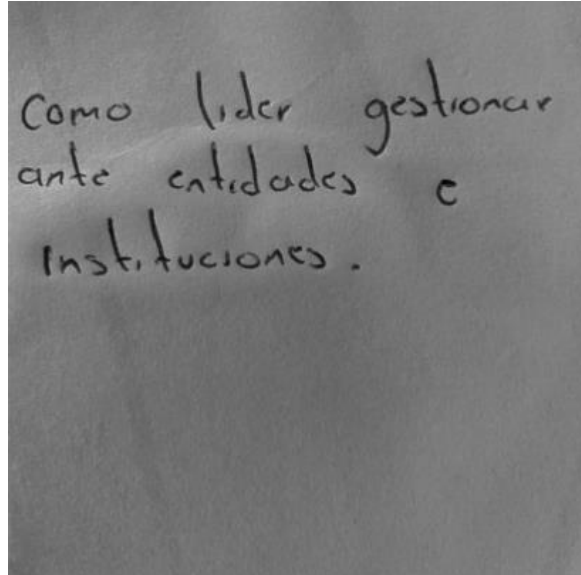 Como lider gestionar
ante entidades e
instituciones.